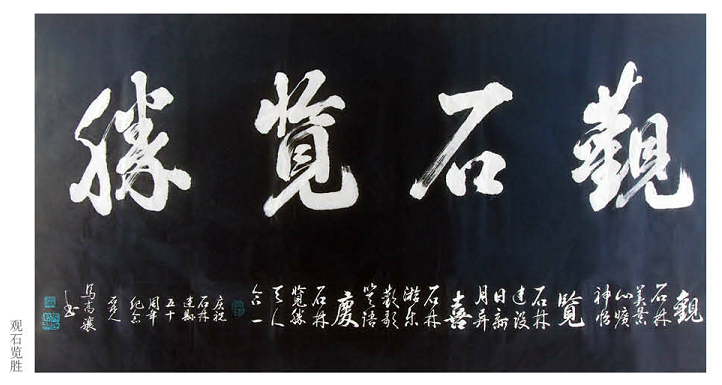 觀石覽勝
觀
石林
美景
心曠
神怡
覽
石林
建设
日新
月异
喜
石林
游乐
歡歌
笑语
慶
石林
覽勝
天人
合一
庆祝
石林
建縣
五十
周年
纪念
馬高驤
书
观石览胜